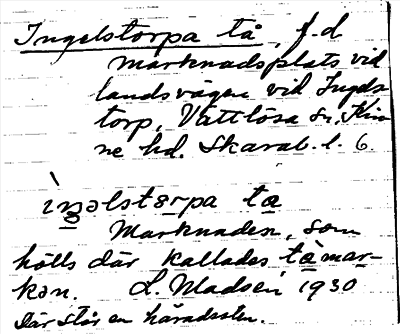 Ingelstorpa tå, f.d.
marknadsplats vid
landsvägen vid Ingels
torp, Vättlösa sn, Kin
ne hd. Skarab. l. 6.
ìŋəlstərpa ta
Marknaden, som
hölls där kallades tàmar-
kən. L. Madsen 1930
Där står en häradssten.